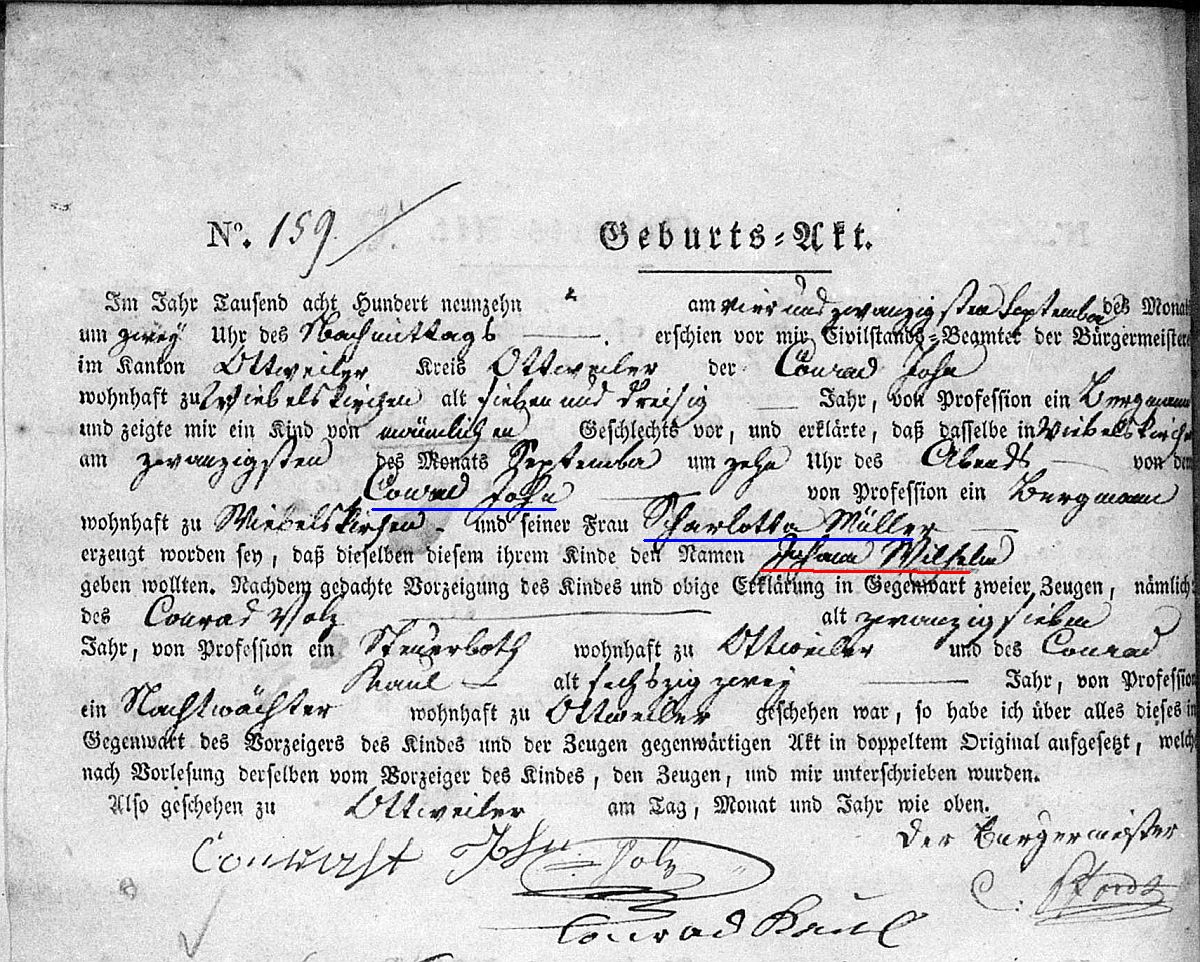 No. 159.
Geburts-Akt.
Im Jahr Tausend acht Hundert neunzehn am vier und zwanzigsten September des Monats
um zwey Uhr des Nachmittags erschien vor mir Civilstands-Beamter der Bürgermeisterei
im Kanton Ottweiler Kreis Ottweiler der Conrad John
wohnhaft zu Wiebelskirchen alt sieben und dreisig Jahr, von Profession ein Bergmann
und zeigte mir ein Kind von mänlichen Geschlechts vor, und erklärte, daß dasselbe in Wiebelskirchen
am zwanzigsten des Monats September um zehn Uhr des Abends von dem
Conrad John von Profession ein Bergmann
wohnhaft zu Wiebelskirchen und seiner Frau Scharlotta Müller
erzeugt worden sey, daß dieselben diesem ihrem Kinde den Namen Johann Wilhelm
geben wollten. Nachdem gedachte Vorzeigung des Kindes und obige Erklärung in Gegenwart zweier Zeugen, nämlich
des Conrad Volz alt zwanzig sieben
Jahr, von Profession ein Steuerboth wohnhaft zu Ottweiler und des Conrad
Kaul alt sechszig zwey Jahr, von Profession
ein Nachtwächter wohnhaft zu Ottweiler geschehen war, so habe ich über alles dieses in
Gegenwart des Vorzeigers des Kindes und der Zeugen gegenwärtigen Akt in doppeltem Original aufgesetzt, welch
nach Vorlesung derselben vom Vorzeiger des Kindes, den Zeugen, und mir unterschrieben wurden.
Also geschehen zu Ottweiler am Tag, Monat und Jahr wie oben.
Der Bürgermeister
Conraht John Volz
Conrad Kaul